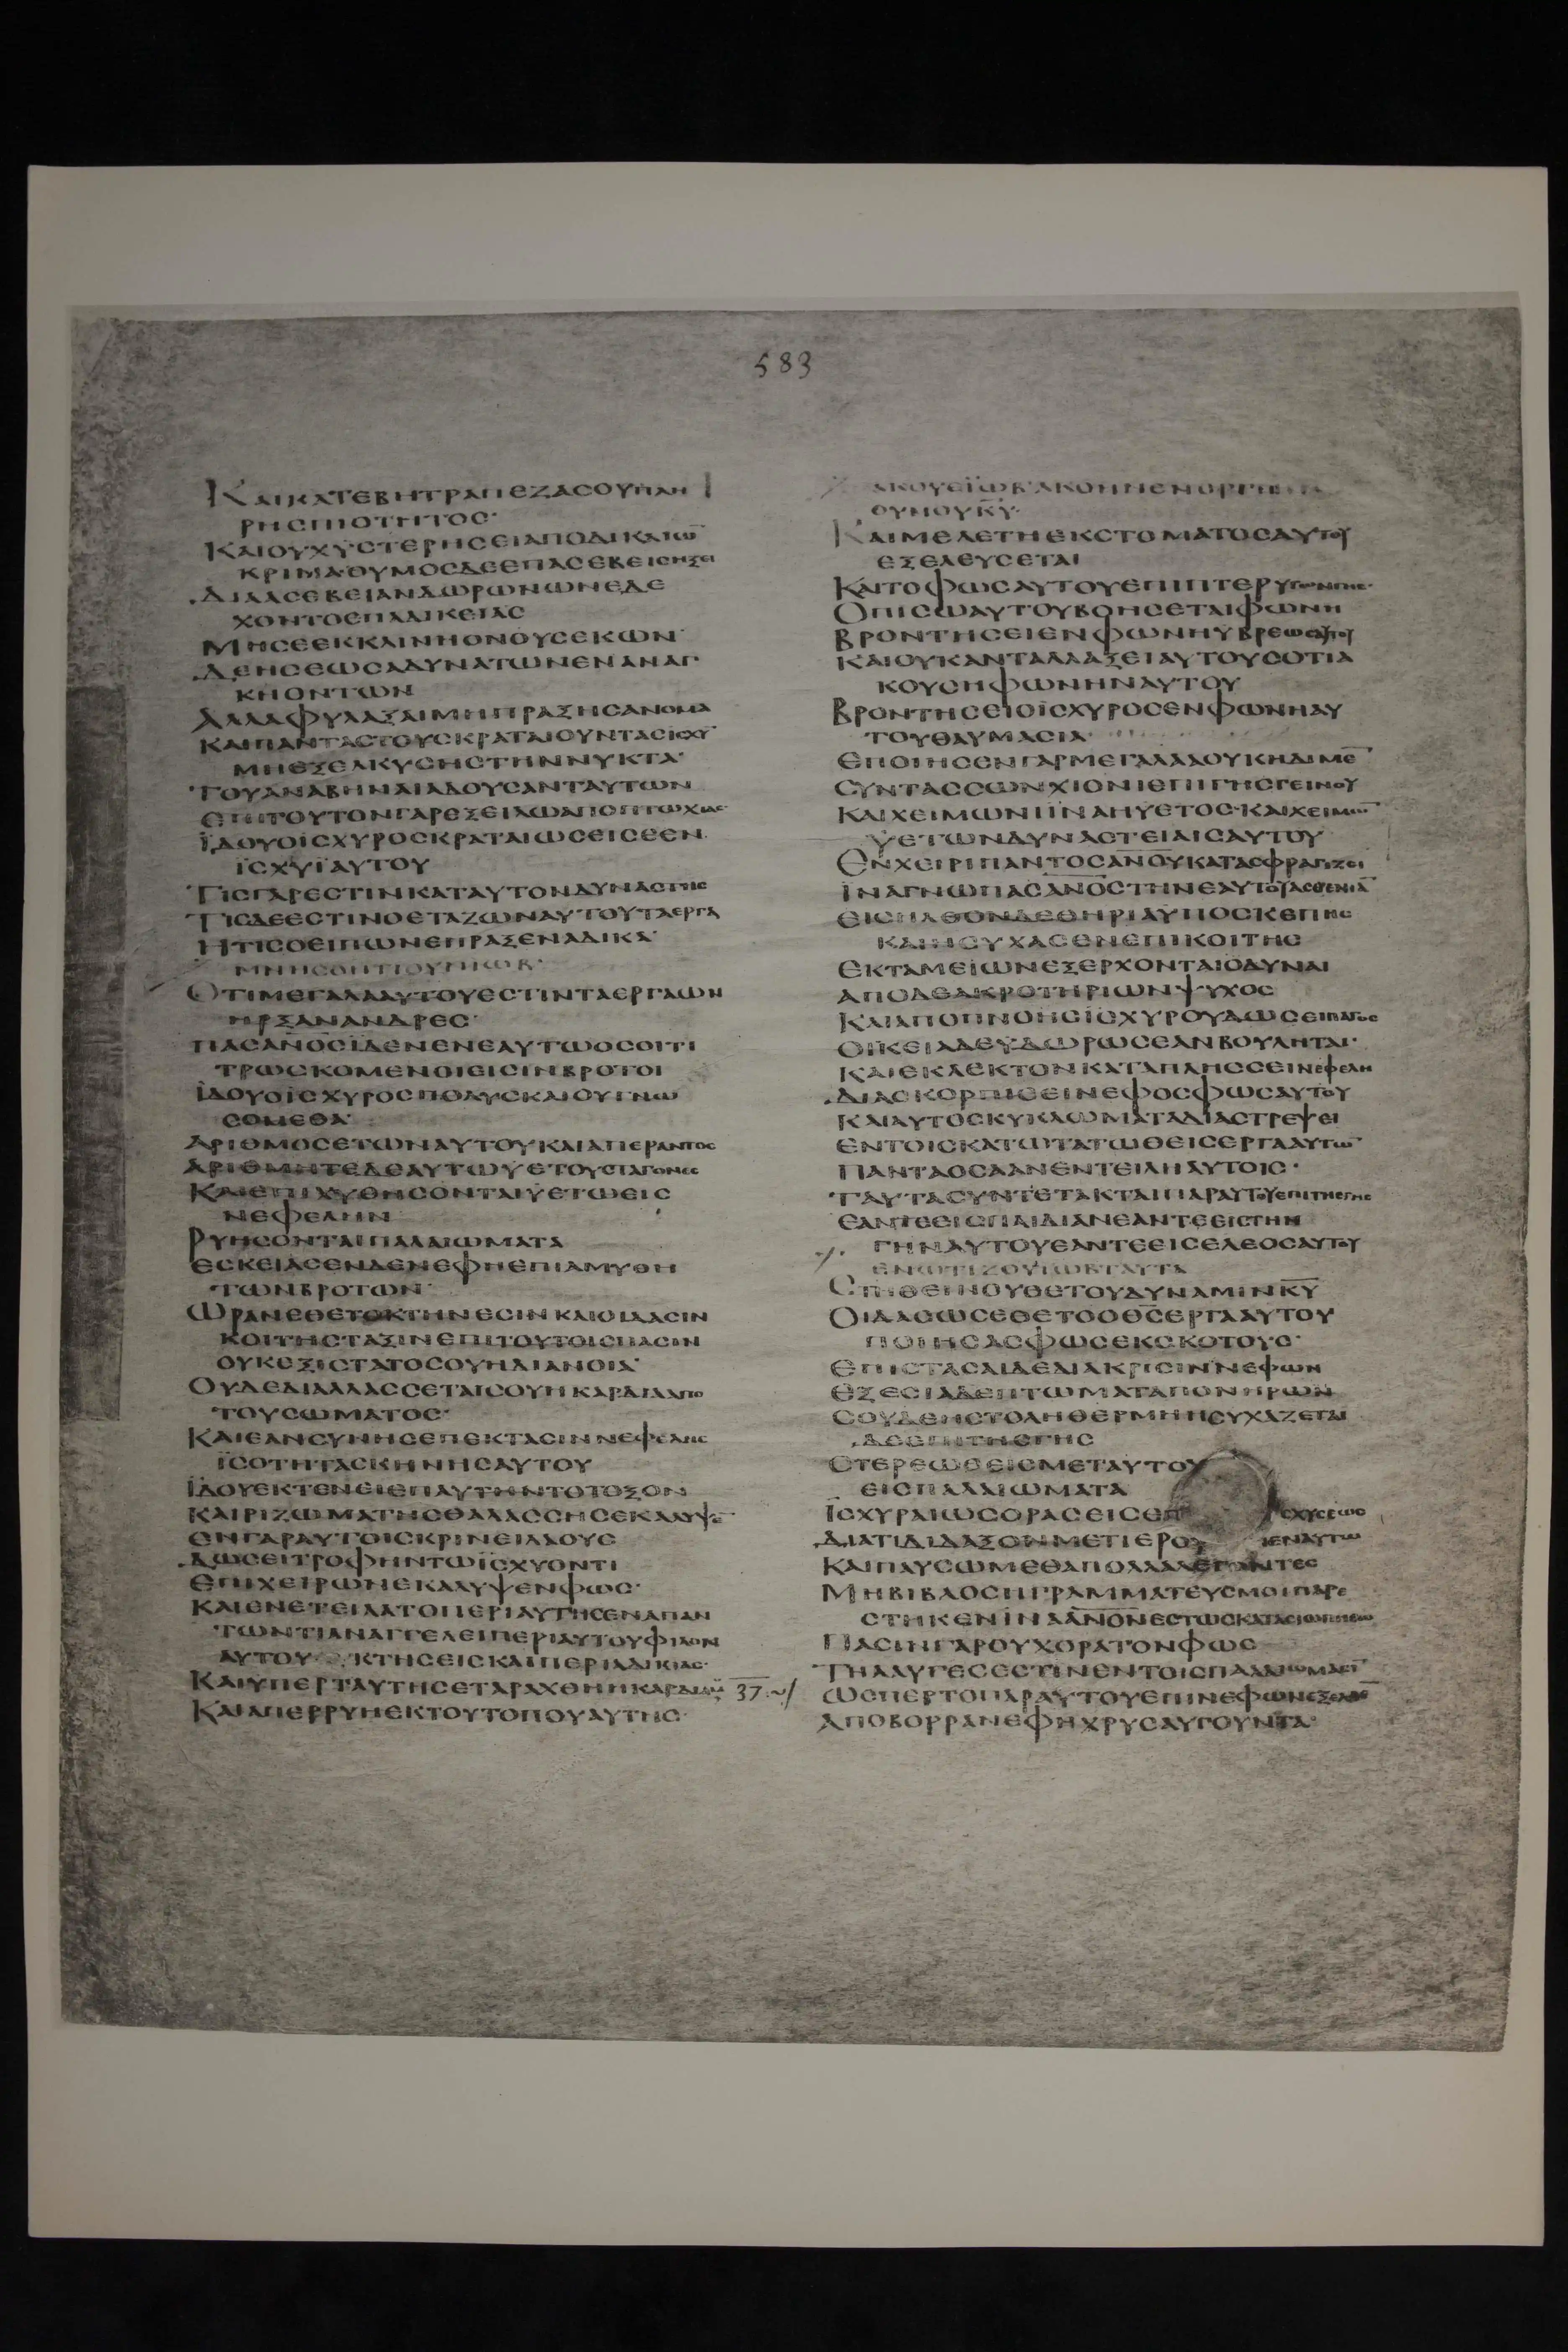 583
ΚΑΙΚΑΤΕΒΗΤΡΑΠΕΖΑΣΟΥΠΛΗ
ΡΗСΠΙΟΤΗΤΟС·
ΚΑΙΟΥΧΥСΤΕΡΗСΕΙΑΠΟΔΙΚΑΙΩ̅
ΚΡΙΜΑΘΥΜΟСΔΕΕΠΑСΕΒΕΙСΗΞΕΙ
ΔΙΑΑСΕΒΕΙΑΝΔΩΡΩΝΩΝΕΔΕ
ΧΟΝΤΟΕΠΑΔΙΚΕΙΑΙС
ΜΗСΕΕΚΚΛΙΝΗΟΝΟΥСΕΚΩΝ
ΔΕΗСΕΩСΑΔΥΝΑΤΩΝΕΝΑΝΑΓ
ΚΗΟΝΤΩΝ
ΑΛΛΑΦΥΛΑΞΑΙΜΗΠΡΑΞΗСΑΝΟΜΑ
ΚΑΙΠΑΝΤΑСΤΟΥСΚΡΑΤΑΙΟΥΝΤΑСΙСΧΥ̅
ΜΗΕΞΕΛΚΥСΗСΤΗΝΝΥΚΤΑ·
ΤΟΥΑΝΑΒΗΝΑΙΛΑΟΥСΑΝΤΑΥΤΩΝ
ΕΠΙΤΟΥΤΟΝΓΑΡΕΞΕΙΛΩΑΠΟΠΤΩΧΙΑС
ΪΔΟΥΟΪСΧΥΡΟСΚΡΑΤΑΙΩСΕΙСΕΝ
ΪСΧΥΪΑΥΤΟΥ
ΤΙСΓΑΡΕСΤΙΝΚΑΤΑΥΤΟΝΔΥΝΑСΤΗС
ΤΙСΔΕΕСΤΙΝΟΕΤΑΖΩΝΑΥΤΟΥΤΑΕΡΓΑ
ΗΤΙСΟΕΙΠΩΝΕΠΡΑΞΕΝΑΔΙΚΑ·
ΜΝΗСΘΗΤΙΟΥΝΙΩΒ·
ΟΤΙΜΕΓΑΛΑΑΥΤΟΥΕСΤΙΝΤΑΕΡΓΑΩΝ
ΗΡΞΑΝΑΝΔΡΕС·
ΠΑСΑΝ̅Ο̅С̅ΪΔΕΝΕΝΕΑΥΤΩΟСΟΙΤΙ
ΤΡΩСΚΟΜΕΝΟΙΕΙСΙΝΒΡΟΤΟΙ
ΪΔΟΥΟΪСΧΥΡΟСΠΟΛΥСΚΑΙΟΥΓΝΩ
СΟΜΕΘΑ·
ΑΡΙΘΜΟСΕΤΩΝΑΥΤΟΥΚΑΙΑΠΕΡΑΝΤΟС
ΑΡΙΘΜΗΤΕΔΕΑΥΤΩΫΕΤΟΥСΤΑΓΟΝΕС
ΚΑΙΕΠΙΧΥΘΗСΟΝΤΑΙΫΕΤΩΕΙС
ΝΕΦΕΛΗΝ
ΡΥΗСΟΝΤΑΙΠΑΛΑΙΩΜΑΤΑ
ΕСΚΕΙΑСΕΝΔΕΝΕΦΗΕΠΙΑΜΥΘΗ
ΤΩΝΒΡΟΤΩΝ·
ΩΡΑΝΕΘΕΤΟΚΤΗΝΕСΙΝΚΑΙΟΙΔΑСΙΝ
ΚΟΙΤΗСΤΑΞΙΝΕΠΙΤΟΥΤΟΙСΠΑСΙΝ
ΟΥΚΕΞΙСΤΑΤΟСΟΥΗΔΙΑΝΟΙΑ·
ΟΥΔΕΔΙΑΛΛΑССΕΤΑΙСΟΥΗΚΑΡΔΙΑΑΠΟ
ΤΟΥСΩΜΑΤΟС·
ΚΑΙΕΑΝСΥΝΗСΕΠΕΚΤΑСΙΝΝΕΦΕΛΗС
ΪСΟΤΗΤΑСΚΗΝΗСΑΥΤΟΥ
ΪΔΟΥΕΚΤΕΝΕΙΕΠΑΥΤΗΝΤΟΤΟΞΟΝ
ΚΑΙΡΙΖΩΜΑΤΗСΘΑΛΑССΗСΕΚΑΛΥΨΕ̅
ΕΝΓΑΡΑΥΤΟΙСΚΡΙΝΕΙΛΑΟΥС
ΔΩСΕΙΤΡΟΦΗΝΤΩΪСΧΥΟΝΤΙ
ΕΠΙΧΕΙΡΩΝΕΚΑΛΥΨΕΝΦΩС·
ΚΑΙΕΝΕΤΕΙΛΑΤΟΠΕΡΙΑΥΤΗСΕΝΑΠΑΝ
ΤΩΝΤΙΑΝΑΓΓΕΛΕΙΠΕΡΙΑΥΤΟΥΦΙΛΟΝ
ΑΥΤΟΥ ΚΤΗСΕΙСΚΑΙΠΕΡΙΑΔΙΚΙΑС·
ΚΑΙΫΠΕΡΤΑΥΤΗСΕΤΑΡΑΧΘΗΗΚΑΡΔΙΑΜ
37
ΚΑΙΑΠΕΡΡΥΗΕΚΤΟΥΤΟΠΟΥΑΥΤΗС·
ΑΚΟΥΕΪΩΒ·ΑΚΟΗΝΕΝΟΡΓΗ
ΘΥΜΟΥΚ̅Υ̅·
ΚΑΙΜΕΛΕΤΗΕΚСΤΟΜΑΤΟСΑΥΤΟΥ
ΕΞΕΛΕΥСΕΤΑΙ
ΚΑΙΤΟΦΩСΑΥΤΟΥΕΠΙΠΤΕΡΥΓΩΝΓΗС·
ΟΠΙСΩΑΥΤΟΥΒΟΗСΕΤΑΙΦΩΝΗ
ΒΡΟΝΤΗСΕΙΕΝΦΩΝΗΫΒΡΕΩСΑΥΤΟΥ
ΚΑΙΟΥΚΑΝΤΑΛΛΑΞΕΙΑΥΤΟΥСΟΤΙΑ
ΚΟΥСΗΦΩΝΗΝΑΥΤΟΥ
ΒΡΟΝΤΗСΕΙΟΪСΧΥΡΟСΕΝΦΩΝΗΑΥ
ΤΟΥΘΑΥΜΑСΙΑ·
ΕΠΟΙΗСΕΝΓΑΡΜΕΓΑΛΑΑΟΥΚΗΔΙΜΕ̅
СΥΝΤΑССΩΝΧΙΟΝΙΕΠΙΓΗСΓΕΙΝΟΥ
ΚΑΙΧΕΙΜΩΝΪΝΑΗΫΕΤΟС·ΚΑΙΧΕΙΜΩ̅
ΫΕΤΩΝΔΥΝΑСΤΕΙΑΙСΑΥΤΟΥ
ΕΝΧΕΙΡΙΠΑΝΤΟСΑΝ̅Ο̅Υ̅ΚΑΤΑСΦΡΑΓΙΖΕΙ
ΪΝΑΓΝΩΠΑСΑΝ̅Ο̅С̅ΤΗΝΕΑΥΤΟΥΑСΘΕΝΙΑ̅
ΕΙСΗΛΘΟΝΔΕΘΗΡΙΑΫΠΟСΚΕΠΗС
ΚΑΙΗСΥΧΑСΕΝΕΠΙΚΟΙΤΗС
ΕΚΤΑΜΕΙΩΝΕΞΕΡΧΟΝΤΑΙΟΔΥΝΑΙ
ΑΠΟΔΕΑΚΡΩΤΗΡΙΩΝΨΥΧΟС
ΚΑΙΑΠΟΠΝΟΗСΪСΧΥΡΟΥΔΩСΕΙΠΑΓΟС
ΟΙΚΕΙΔΕΥΔΩΡΩСΕΑΝΒΟΥΛΗΤΑΙ·
ΚΑΙΕΚΛΕΚΤΟΝΚΑΤΑΠΛΗССΕΙΝΕΦΕΛΗ
ΔΙΑСΚΟΡΠΙСΕΙΝΕΦΟСΦΩСΑΥΤΟΥ
ΚΑΙΑΥΤΟСΚΥΚΛΩΜΑΤΑΔΙΑСΤΡΕΨΕΙ
ΕΝΤΟΙСΚΑΤΩΤΑΤΩΘΕΙСΕΡΓΑΑΥΤΩ̅
ΠΑΝΤΑΟСΑΑΝΕΝΤΕΙΛΗΑΥΤΟΙС·
ΤΑΥΤΑСΥΝΤΕΤΑΚΤΑΙΠΑΡΑΥΤΟΥΕΠΙΤΗСΓΗС
ΕΑΝΤΕΕΙСΠΑΙΔΙΑΝΕΑΝΤΕΕΙСΤΗΝ
ΓΗΝΑΥΤΟΥΕΑΝΤΕΕΙСΕΛΕΟСΑΥΤΟΥ
ΕΝΩΤΙΖΟΥΪΩΒΤΑΥΤΑ
СΤΗΘΕΙΝΟΥΘΕΤΟΥΔΥΝΑΜΙΝΚ̅Υ̅
ΟΙΔΑСΩСΕΘΕΤΟΟΘ̅С̅ΕΡΓΑΑΥΤΟΥ
ΠΟΙΗСΑСΦΩСΕΚСΚΟΤΟΥС·
ΕΠΙСΤΑСΑΙΔΕΔΙΑΚΡΙСΙΝΝΕΦΩΝ
ΕΞΕСΙΑΔΕΠΤΩΜΑΤΑΠΟΝΗΡΩΝ
СΟΥΔΕΗСΤΟΛΗΘΕΡΜΗΗСΥΧΑΖΕΤΑΙ
ΔΕΕΠΙΤΗСΓΗС
СΤΕΡΕΩСΕΙСΜΕΤΑΥΤΟΥ
ΕΙСΠΑΛΑΙΩΜΑΤΑ
ΪСΧΥΡΑΙΩСΟΡΑСΕΙСΕΠ ΕΧΥСΕΩС
ΔΙΑΤΙΔΙΔΑΞΟΝΜΕΤΙΕΡΟΥ ΕΝΑΥΤΩ
ΚΑΙΠΑΥСΩΜΕΘΑΠΟΛΛΑΛΕΓΟΝΤΕС
ΜΗΒΙΒΛΟСΗΓΡΑΜΜΑΤΕΥСΜΟΙΠΑΡΕ
СΤΗΚΕΝΪΝΑΑΝ̅Ο̅Ν̅ΕСΤΩСΚΑΤΑСΙΩΠΗСΩ
ΠΑСΙΝΓΑΡΟΥΧΟΡΑΤΟΝΦΩС
ΤΗΛΑΥΓΕСΕСΤΙΝΕΝΤΟΙСΠΑΛΑΙΩΜΑСΙ̅
ΩСΠΕΡΤΟΠΑΡΑΥΤΟΥΕΠΙΝΕΦΩΝ
ΑΠΟΒΟΡΡΑΝΕΦΗΧΡΥСΑΥΓΟΥΝΤΑ·